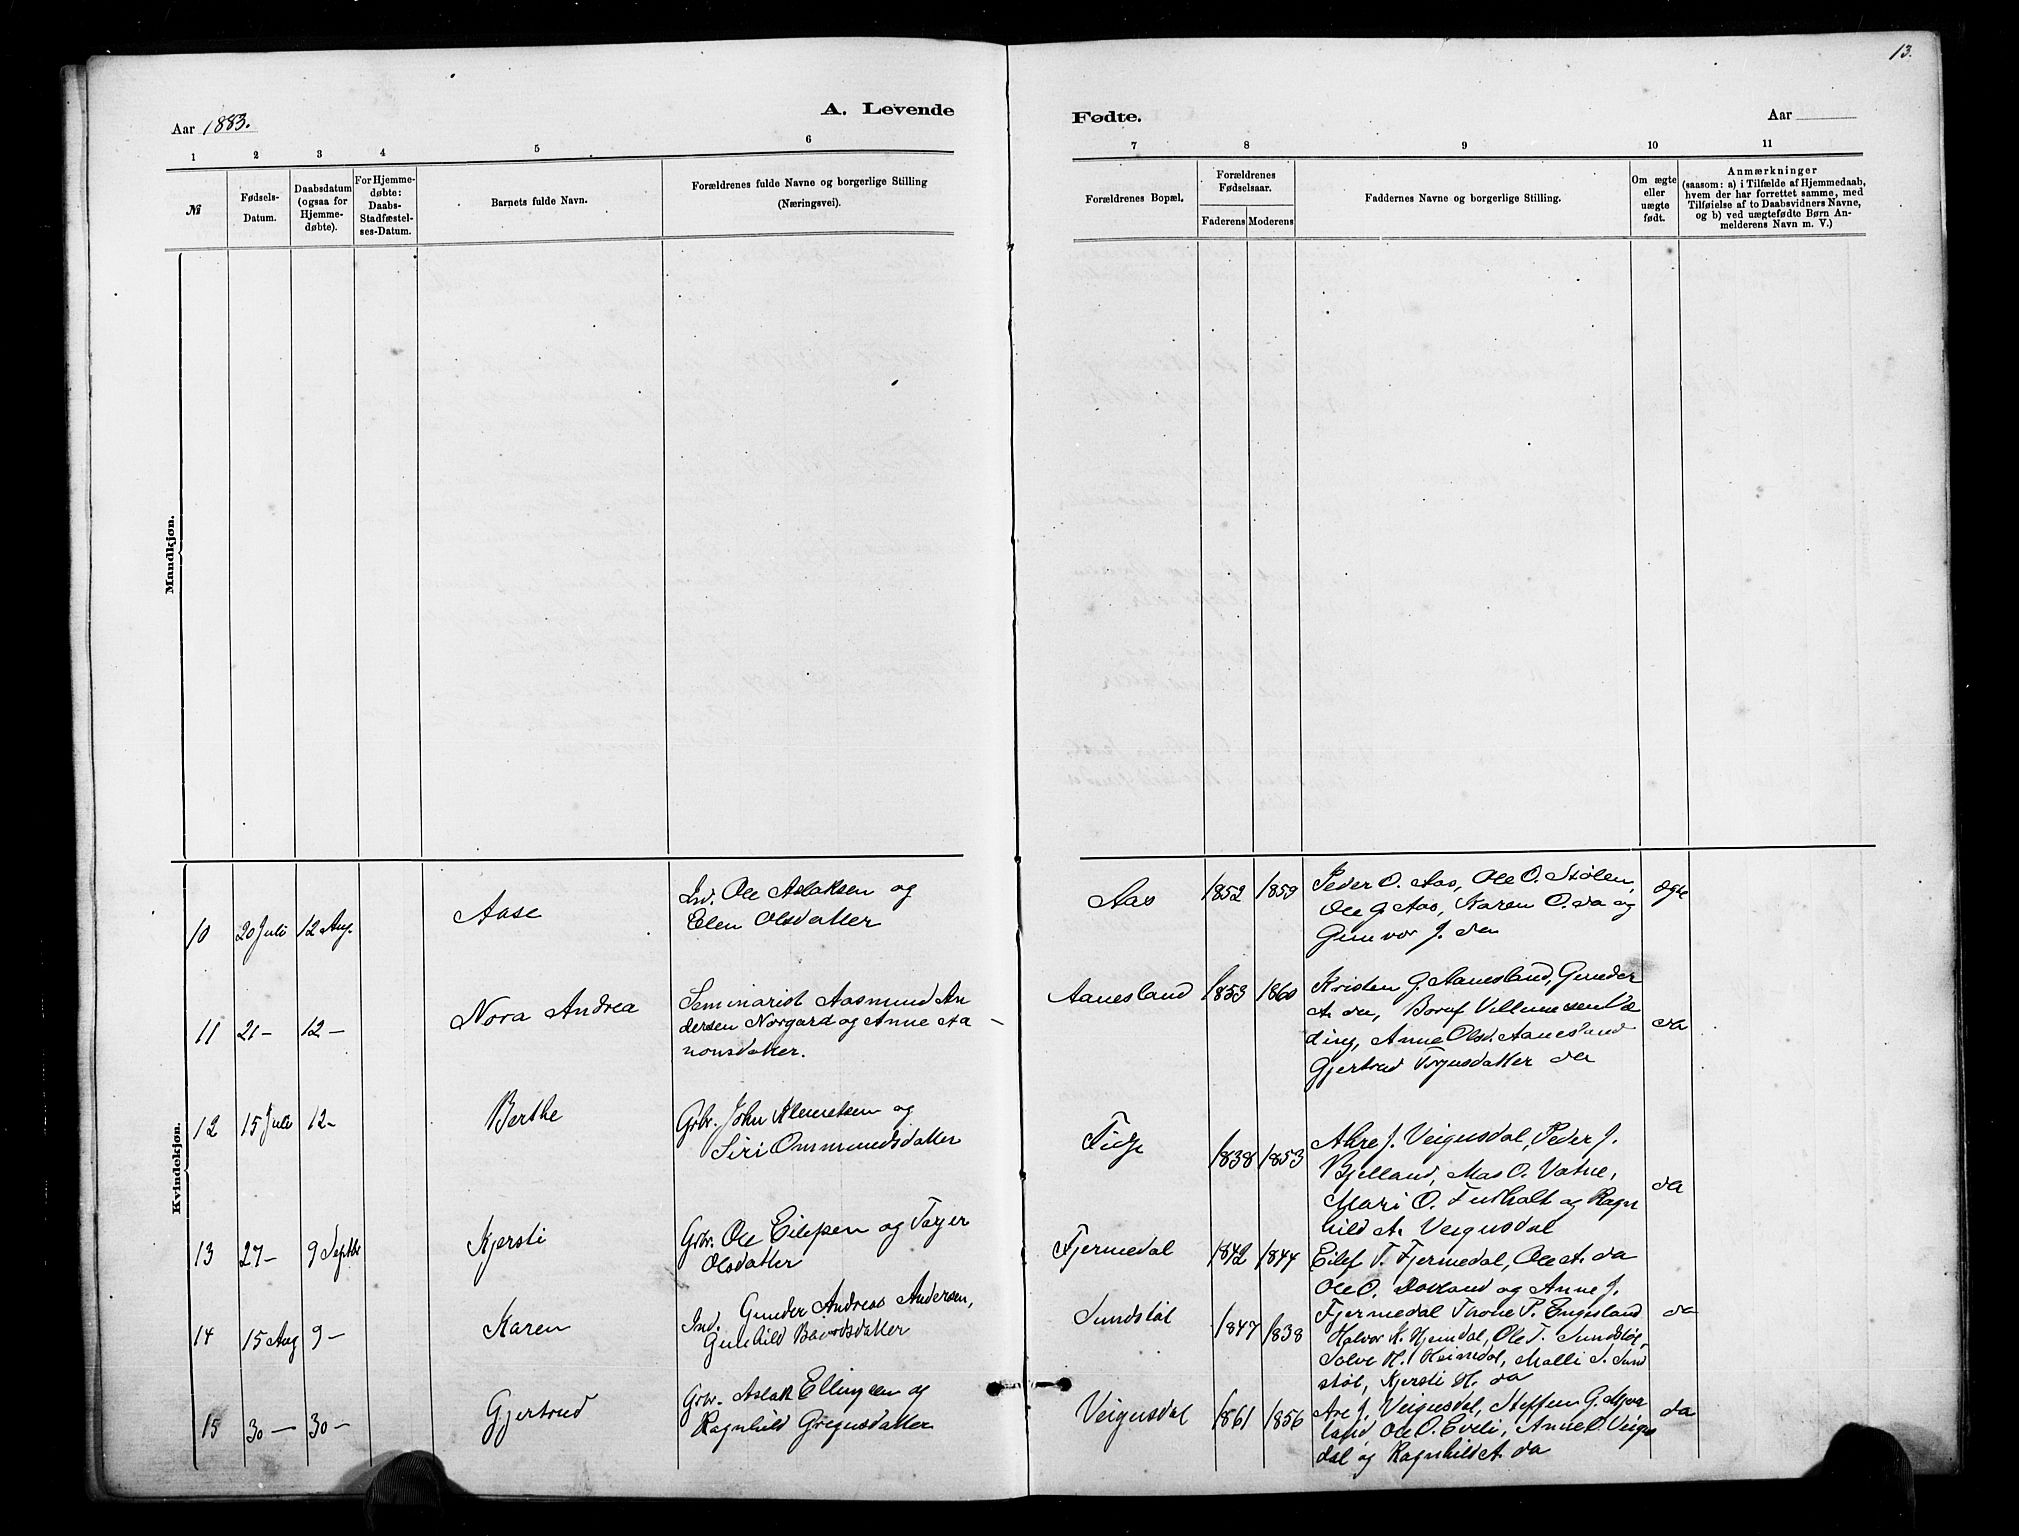 13.
A. Levende
Fødte.
Aar 1883.
Aar
1 2 3 4 5 6
7 8 9 10 11
№
Fødsels-
Datum.
Daabsdatum
(ogsaa for
Hjemme-
døbte).
For Hjemme-
døbte:
Daabs-
Stadfæstel-
ses-Datum.
Barnets fulde Navn.
Forældrenes fulde Navne og borgerlige Stilling
(Næringsvei).
Forældrenes Bopæl.
Forældrenes
Fødselsaar.
Faderens Moderens
Faddernes Navne og borgerlige Stilling.
Om ægte
eller
uægte
født.
Anmærkninger
(saasom: a) i Tilfælde af Hjemmedaab,
hvem der har forrettet samme, med
Tilføielse af to Daabsvidners Navne,
og b) ved uægtefødte Børn An-
melderens Navn m. V.)
Mandkjøn.
Kvindekjøn.
10 20 Juli 12 Aug.
Aase
Ind. Ole Aslaksen og
Elen Olsdatter
Aas
1852 1859
Peder O. Aas, Ole O. Stølen,
Ole G. Aas, Karen O. da og
Gunvor J. da
ægte
11 21 — 12 —
Nora Andrea
Seminarist Aasmund An
dersen Norgard og Anne Aa
nonsdatter.
Aanesland
1853 1860
Kristen G. Aanesland, Gunder
A. da, Villumsen
Anne Olsd. Aanesland
Gjertrud Torjusdatter da
da
12 15 Juli 12 —
Berthe
Gbr. John Klemetsen og
Siri Ommundsdatter
Fidje
1838 1853
Are J. Veigusdal, Peder J.
Bjelland, Mas O. Vatne,
Mari O. og Ragn
hild A. Veigusdal
da
13 27 — 9 Septbr
Kjersti
Gbr. Ole Eilefsen og Torjer
Olsdatter
Fjermedal
1842 1844
Eilef T. Fjermedal, Ole A. da
Ole O. Dovland og Anne J.
Fjermedal Thone P. Engesland
da
14 15 Aug 9 —
Karen
Ind. Gunder Andreas Andersen,
Gunhild Baardsdatter
Sundstøl
1847 1838
Halvor K. Ole T. Sundstøl,
Salve H. Heimdal, Malli S. Sund
støl, Kjersti H. da
15 30 — 30 —
Gjertrud
Gbr. Aslak Ellingsen og
Ragnhild Gregusdatter
Veigusdal
1861 1856
Are J. Veigusdal, Steffen G. Mjaa
land Ole O. Eveli, Anne O. Veigus
dal og Ragnhild A. da
da